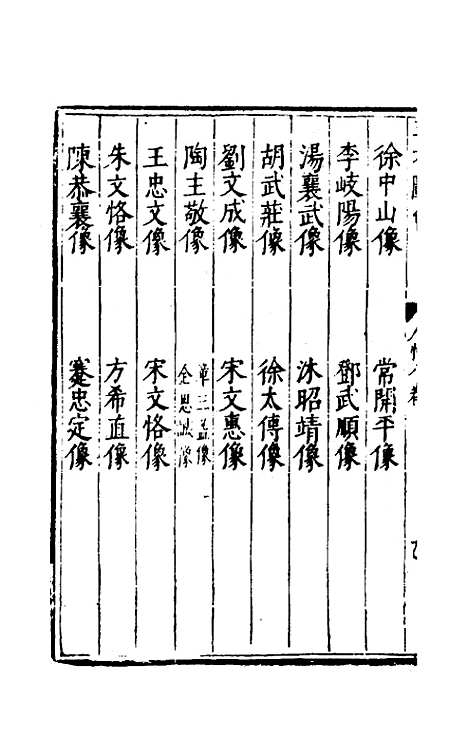 徐中山像 常開平像
李岐陽像 鄧武順像
湯襄武像 沐昭靖像
胡武莊像 徐太傅像
劉文成像 宋文惠像
陶主敬像 單三孟像 全思誠像
王忠文像 宋文恪像
朱文恪像 方希直像
陳恭襄像 蹇忠定像